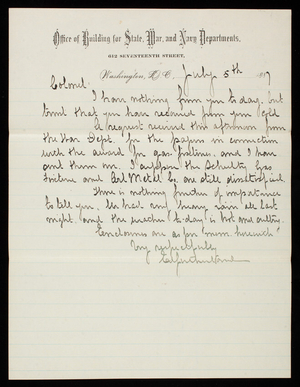 Office of Building for State, War, and Navy Departments,
612 SEVENTEENTH STREET,
Washington, D.C. July 5th 1887
Colonel:
I have nothing from you to-day, but
trust that you have recovered from your cold
A request received this afternoon from
the War Dept. for the papers in connection
with the award for gas fixtures, and I have
sent them in. I suppose the Schultz Gas
Fixture and Art Metal Co. are still dissatisfied.
There is nothing further of importance
to tell you. We had very heavy rain all last
night, and the weather to-day is hot and sultry.
Enclosures are as per "mem. herewith"
Very respectfully